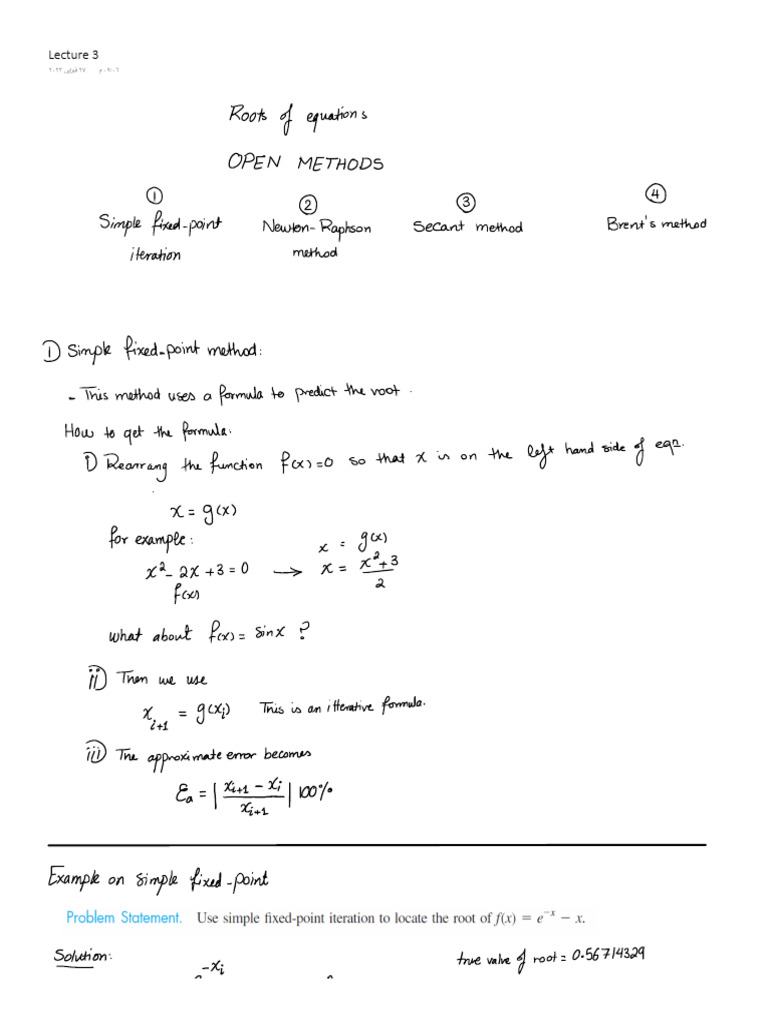 Lecture 3
Roots of equations
OPEN METHODS
① ② ③ ④
Simple fixed-point iteration
Newton-Raphson method
Secant method
Brent's method
① Simple fixed-point method:
- This method uses a formula to predict the root.
How to get the formula.
i) Rearrang the function f(x)=0 so that x is on the left hand side of eqn.
x = g(x)
for example:
x = g(x)
x² - 2x + 3 = 0 → x = (x² + 3)/2
f(x)
what about f(x) = sinx ?
ii) Then we use
x_{i+1} = g(x_i) This is an itterative formula.
iii) The approximate error becomes
ε_a = | (x_{i+1} - x_i)/x_{i+1} | 100%
Example on simple fixed-point
Problem Statement. Use simple fixed-point iteration to locate the root of f(x) = e^{-x} - x.
Solution: true value of root = 0.56714329
-x_i